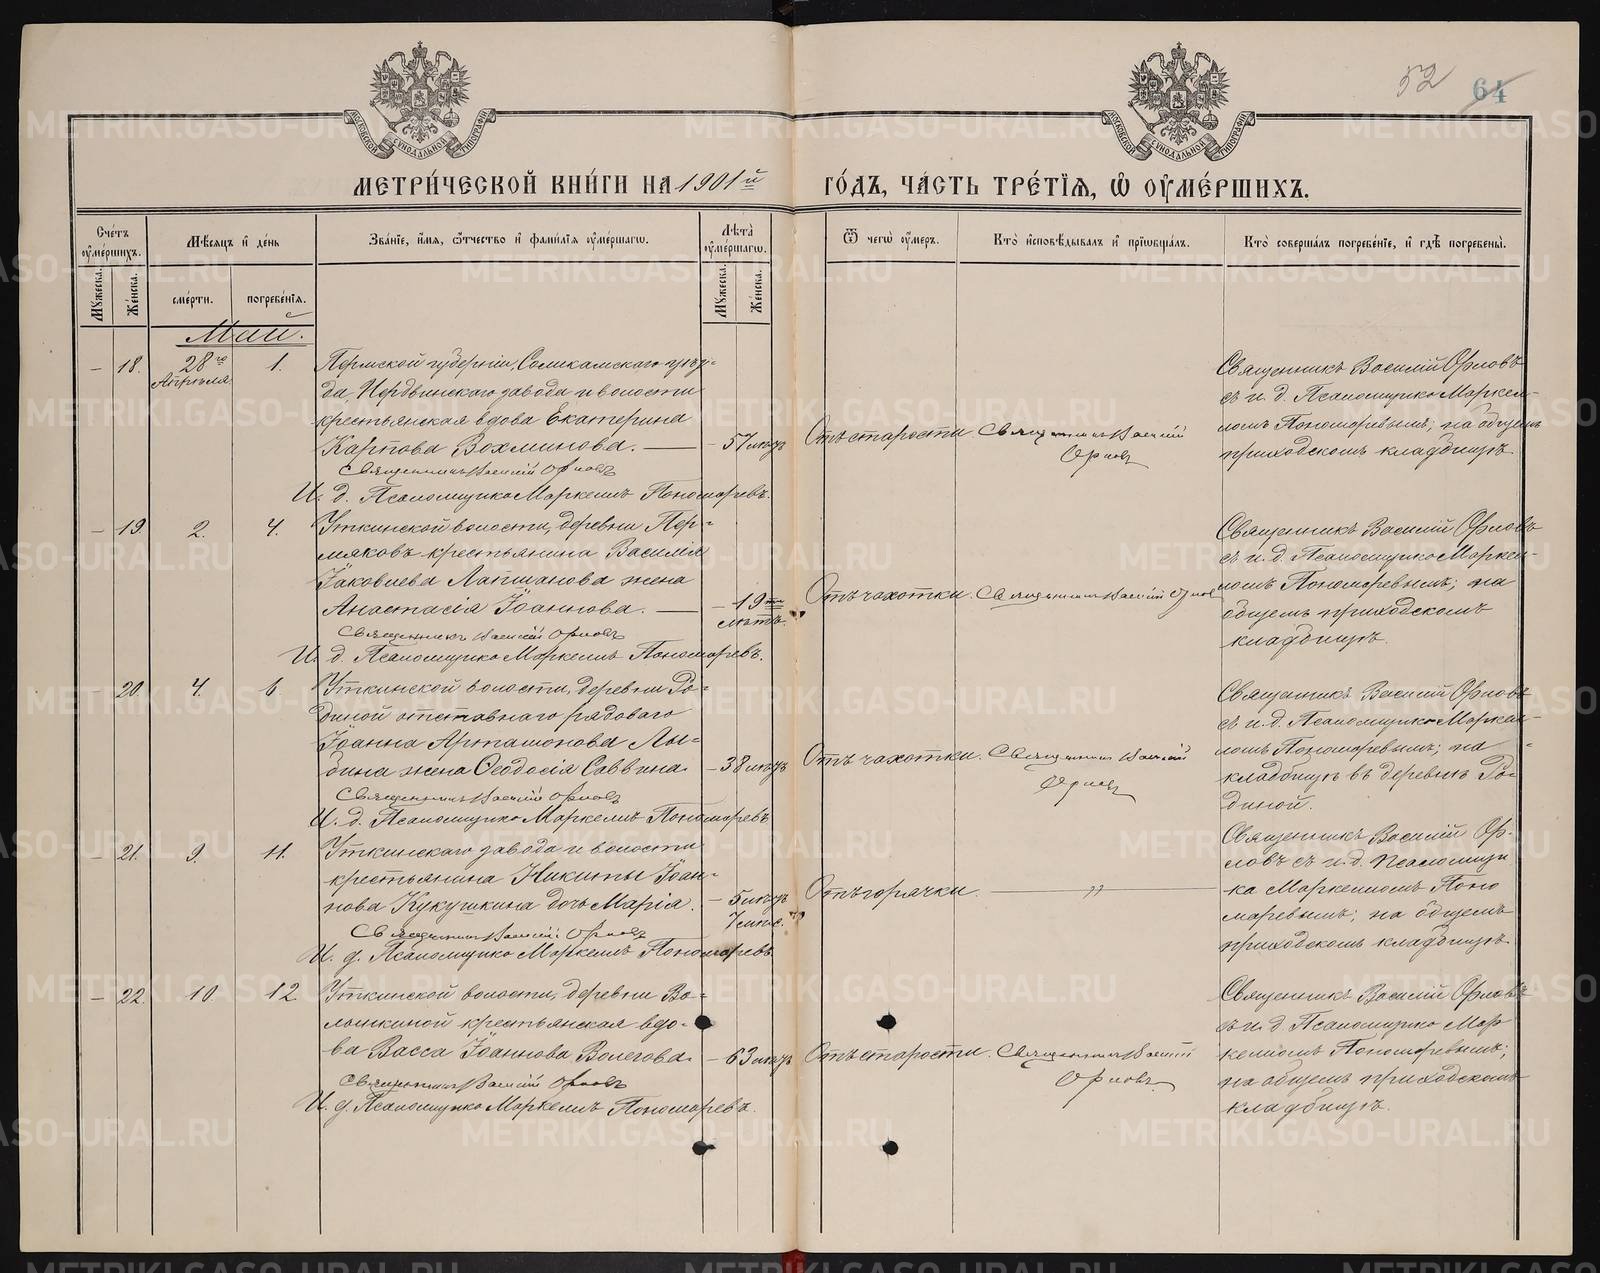 52 64
МЕТРИ́ЧЕСКОЙ КНИ́ГИ НА 1901й ГО́ДЪ, ЧА́СТЬ ТРЕ́ТЇѦ, Ѽ ОУМЕ́РШИХЪ.
Сче́тъ оуме́ршихъ.
Мѣ́сяцъ и де́нь
Зва́нїе, и́мя, ѻ҆́тчество и фами́лїя оуме́ршагѡ.
Лѣ́та оуме́ршагѡ.
Ѿ чегѡ̀ оу́меръ.
Кто̀ исповѣ́дывалъ и прїѡбща́лъ.
Кто̀ соверша́лъ погребе́нїе, и гдѣ̀ погребены̀.
Му́жеска.
Же́нска.
сме́рти.
погребе́нїя.
Му́жеска.
Же́нска.
Май.
– 18. 28го Апрѣля 1.
Пермской губернiи, Соликамскаго уѣз-
да, Нердвинскаго завода и волости
крестьянская вдова Екатерина
Карпова Вохминова. – 57 лѣтъ
Священникъ Василiй Орловъ
И. д. Псаломщика Маркеллъ Пономаревъ.
Отъ старости
Священникъ Василiй
Орловъ
Священникъ Василiй Орловъ
съ и. д. Псаломщика Маркел-
ломъ Пономаревымъ; на общемъ
приходскомъ кладбищѣ.
– 19. 2. 4.
Уткинской волости, деревни Пер-
мяковъ крестьянина Василiя
Iаковлева Лапшанова жена
Анастасiя Iоаннова. – 19 лѣтъ.
Священникъ Василiй Орловъ
И. д. Псаломщика Маркеллъ Пономаревъ.
Отъ чахотки.
Священникъ Василiй Орловъ
Священникъ Василiй Орловъ
съ и. д. Псаломщика Маркел-
ломъ Пономаревымъ; на
общемъ приходскомъ
кладбищѣ.
– 20. 4. 6.
Уткинской волости, деревни Ро-
диной отставнаго рядоваго
Iоанна Артамонова Лы-
бина жена Ѳеодосiя Саввина. – 38 лѣтъ
Священникъ Василiй Орловъ
И. д. Псаломщика Маркеллъ Пономаревъ
Отъ чахотки.
Священникъ Василiй
Орловъ
Священникъ Василiй Орловъ
съ и. д. Псаломщика Маркел-
ломъ Пономаревымъ; на
кладбищѣ въ деревнѣ Ро-
диной.
– 21. 9. 11.
Уткинскаго завода и волости
крестьянина Никиты Iоан-
нова Кукушкина дочь Марiя. – 5 лѣтъ
7 мѣс.
Священникъ Василiй Орловъ
И. д. Псаломщика Маркеллъ Пономаревъ.
Отъ горячки. – „ –
Священникъ Василiй Ор-
ловъ съ и. д. Псаломщи
ка Маркелломъ Поно
маревымъ; на общемъ
приходскомъ кладбищѣ.
– 22. 10. 12.
Уткинской волости, деревни Во-
лынкиной крестьянская вдо-
ва Васса Iоаннова Волегова. – 63 лѣтъ
Священникъ Василiй Орловъ
И. д. Псаломщика Маркеллъ Пономаревъ.
Отъ старости.
Священникъ Василiй
Орловъ.
Священникъ Василiй Орловъ
съ и. д. Псаломщика Мар
келломъ Пономаревымъ;
на общемъ приходскомъ
кладбищѣ.
METRIKI.GASO-URAL.RU